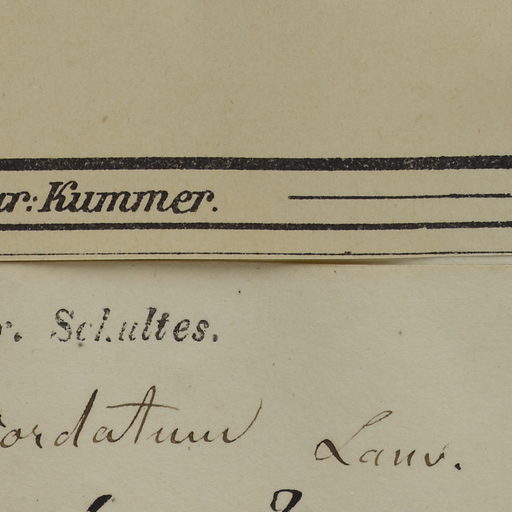 ar: Kummer.
r. Schultes.
cordatum Lam.